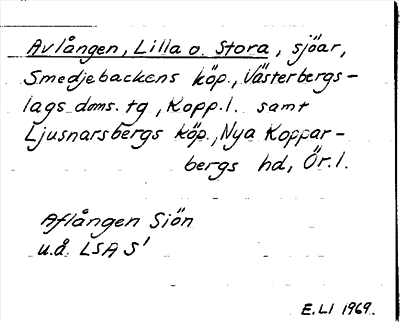 Avlången, Lilla o. Stora, sjöar,
Smedjebackens köp., Västerbergs-
lags doms. tg, Kopp. l. samt
Ljusnarsbergs köp., Nya Koppar-
bergs hd, Ör. l.
Aflången Siön
u.å. LSA S1
E. LI 1969.